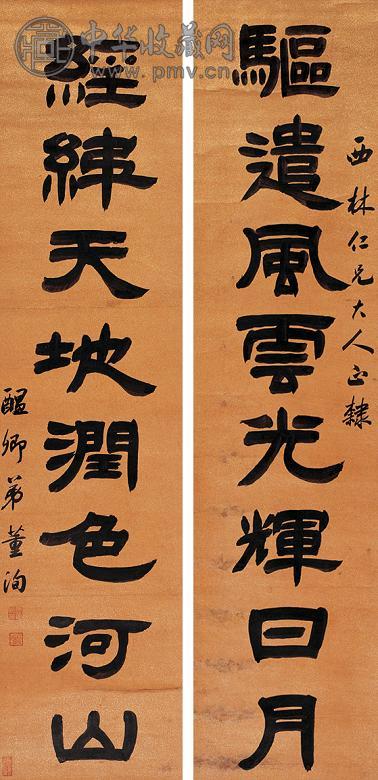 中华收藏网
www.pmv.cn
西林仁兄大人正隸
驅遣風雲光輝日月
經緯天地潤色河山
醖卿弟董洵